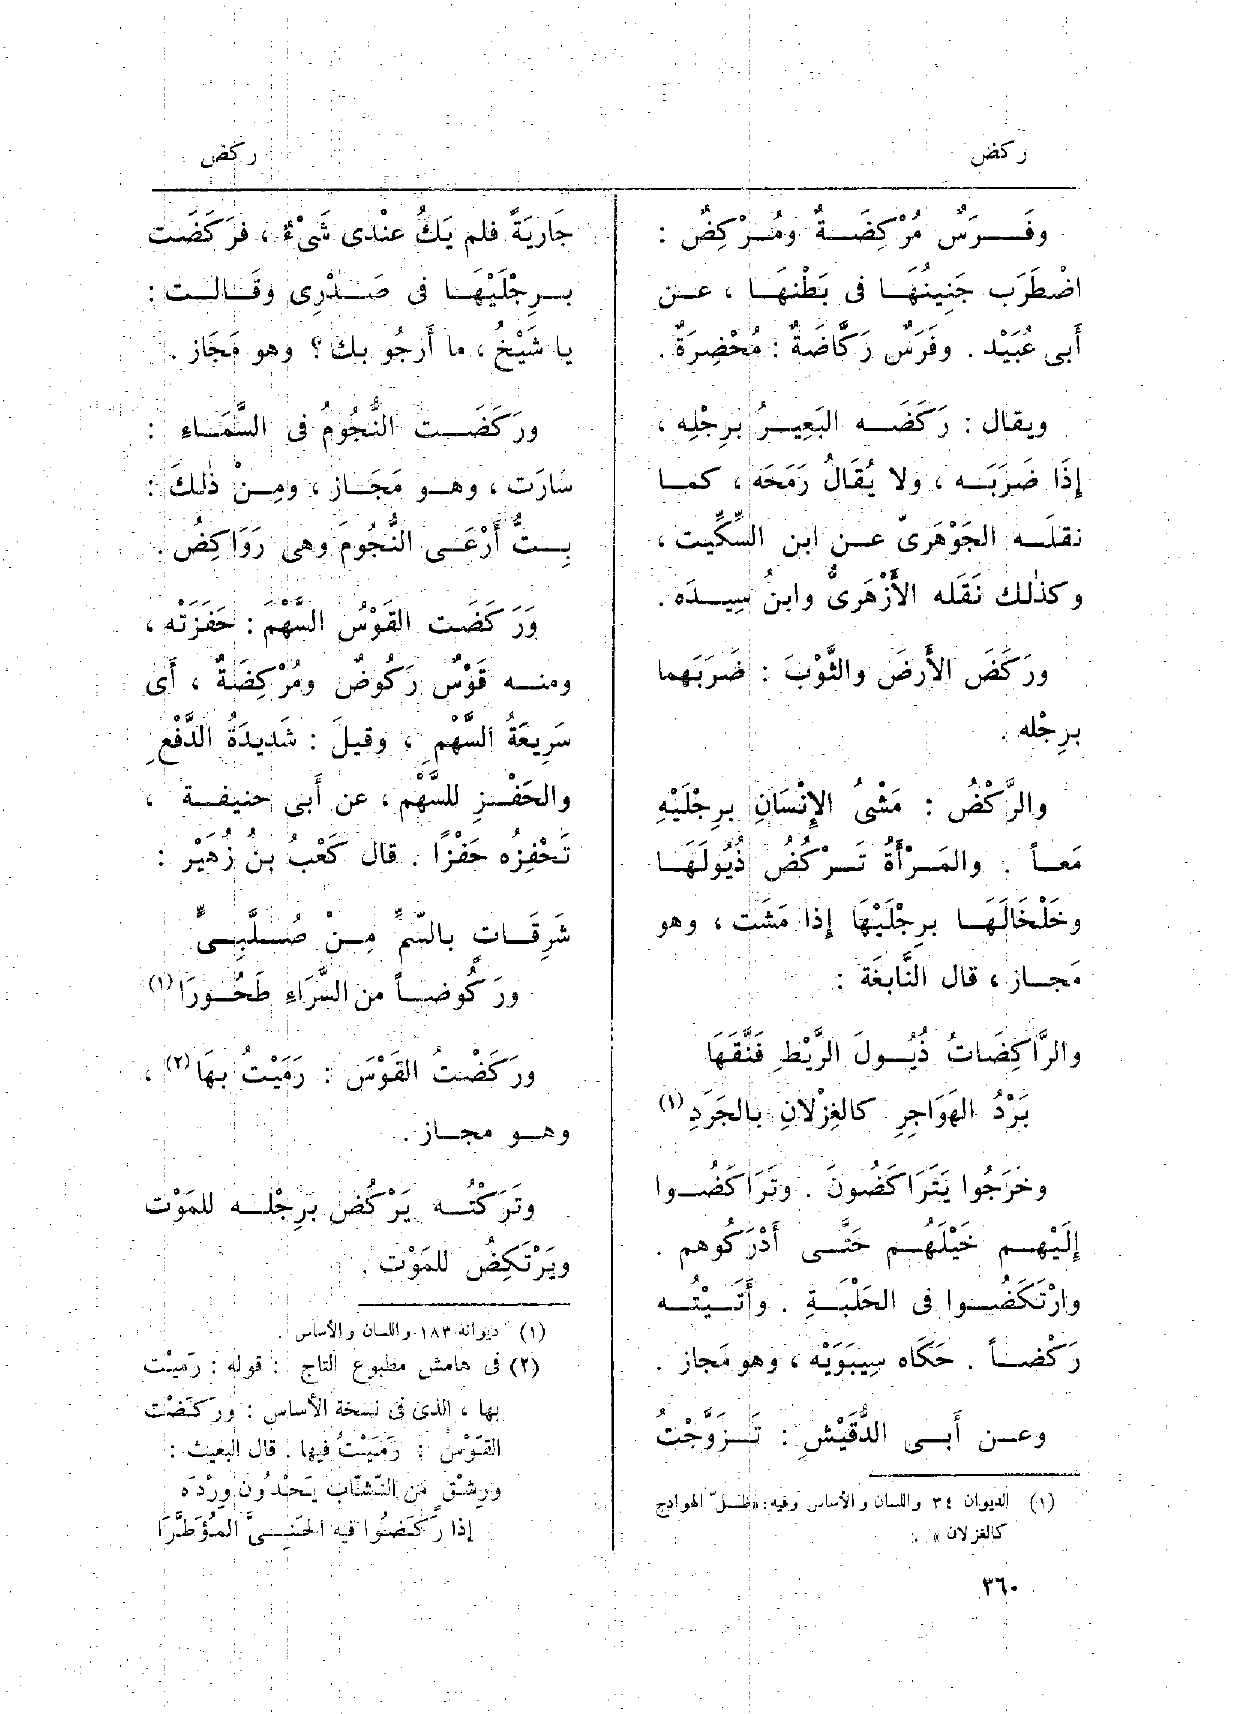 ركض
ركض
وفَـــرَسٌ مُرْكِضَـــةٌ ومُــرْكِضٌ :
اضْطَرَب جَنِينُهَـا فى بَطْنهَـا ، عـن
أَبى عُبَيْد . وفَرَسٌ رَكَّاضَةٌ : مُحْضِرَةٌ .
ويقال : رَكَضَــه البَعِيــرُ برِجْلِه ،
إِذَا ضَرَبَــه ، ولا يُقَالُ رَمَحَه ، كمـا
نقلَــه الجَوْهَرِىّ عــن ابن السِّكِّيت ،
وكذٰلك نَقَله الأَزْهَرِىُّ وابنُ سِيــدَه .
ورَكَضَ الأَرضَ والثَّوْبَ : ضَرَبَهما
برِجْله .
والرَّكْضُ : مَشْىُ الإِنْسَانِ برِجْلَيْهِ
مَعـاً . والمَــرْأَةُ تَــرْكُضُ ذُيُولَهَــا
وخَلْخَالَهَــا برِجْلَيْهَا إِذا مَشَت ، وهو
مَجـاز ، قال النَّابغَة :
والرَّاكِضَاتُ ذُيُــولَ الرَّيْطِ فَنَّقَهَا
بَرْدُ الهَوَاجِرِ كالغِزْلانِ بالجَرَدِ (١)
وخَرَجُوا يَتَرَاكَضُونَ . وتَرَاكَضُــوا
إِلَيْهــم خَيْلَهُــم حَتَّــى أَدْرَكُوهم .
وارْتَكَضُــوا فى الحَلْبَــةِ . وأَتَــيْتــه
رَكْضــاً . حَكَاه سِيبَوَيْه ، وهو مَجاز .
وعــن أَبــى الدُّقَيْشِ : تَــزَوَّجْتُ
(١) الديوان ٣٤ واللسان والأساس وفيه : « ظــلّ الهوادج
كالغزلان » .
جَارِيَةً فلم يَكُ عنْدى شَىْءٌ ، فرَكَضَت
بــرِجْلَيْهَــا فى صَــدْرِى وقَــالــت :
يا شَيْخُ ، ما أَرجُو بك ؟ وهو مَجَاز .
ورَكَضَــت النُّجُومُ فى السَّمَــاءِ :
سَارَت ، وهــو مَجَــاز ، ومِــنْ ذٰلكَ :
بِــتُّ أَرْعَــى النُّجُومَ وهى رَوَاكِضُ .
وَرَكَضَت القَوْسُ السَّهْمَ : حَفَزَتْه ،
ومنــه قَوْسٌ رَكُوضٌ ومُرْكِضَةٌ ، أَى
سَرِيعَةُ السَّهْمِ ، وقيلَ : شَديدَةُ الدَّفْعِ
والحَفْــزِ للسَّهْم ، عن أَبى حنيفــة ،
تَحْفِزُه حَفْزًا . قال كَعْبُ بنُ زُهَيْر :
شَرِقَــاتٍ بالسّمِّ مِــنْ صُــلَّبِــىٍّ
ورَكُوضــاً من السَّرَاءِ طَحُــورَا (١)
ورَكَضْتُ القَوْسَ : رَمَيْتُ بهَا (٢) ،
وهــو مجــاز .
وتَرَكْتُــه يَرْكُض برِجْلــه للمَوْت
ويَرْتَكِضُ للمَوْت .
(١) ديوانه ١٨٣ واللسان والأساس .
(٢) فى هامش مطبوع التاج : قوله : رَميْت
بها ، الذى فى نسخة الأساس : ورَكَضْت
القَوْسَ : رَمَيْتُ فيها . قال البعيث :
ورِشْقٍ مَن النَّشَّاب يَحْدُون ورْدَه
إذا رَكَضُوا فيه الحَنِــىَّ المُؤَطَّرَا
٣٦٠